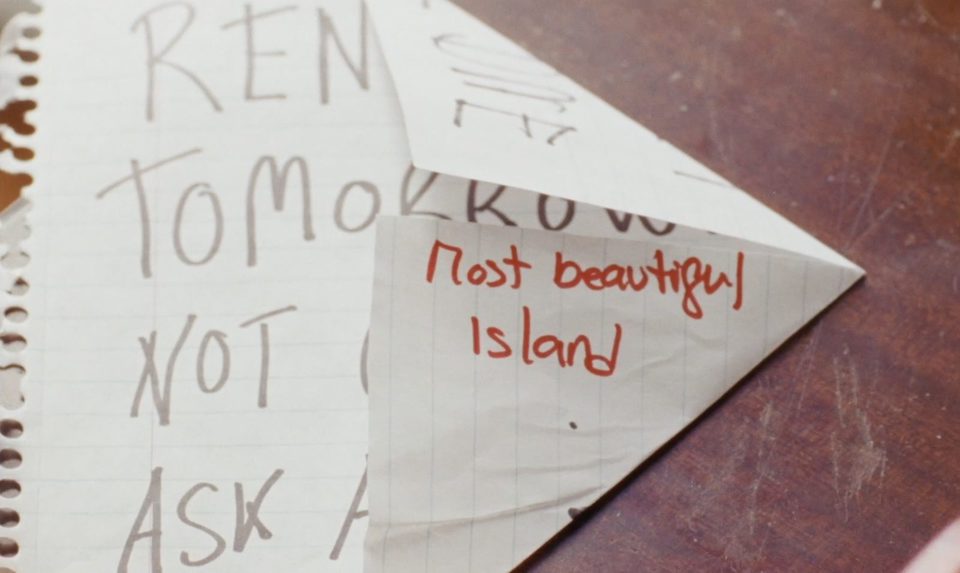 REN
TOMORROW
NOT
ASK
Most beautiful
Island